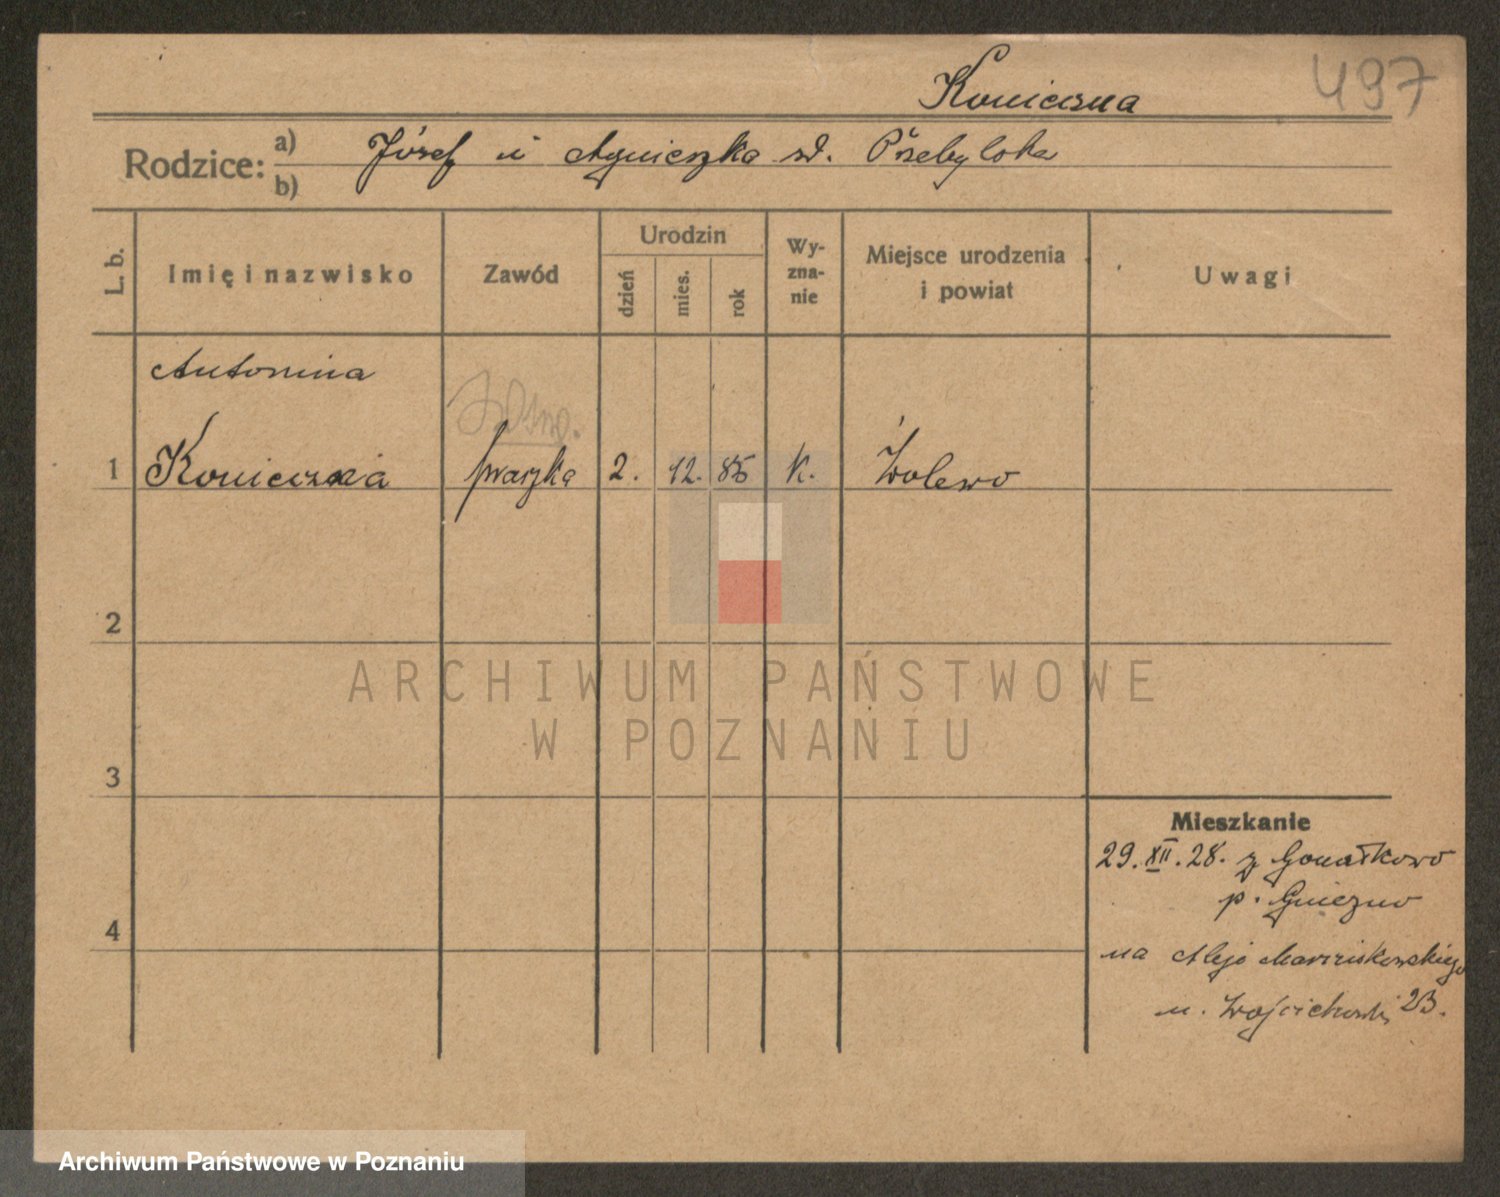 Konieczna
497
Rodzice: a) Józef u Agnieszka zd. Przebylska
b)
L. b.
Imię i nazwisko
Zawód
Urodzin
dzień
mies.
rok
Wy-
zna-
nie
Miejsce urodzenia
i powiat
Uwagi
Antonina
1 Konieczna praczka 2. 12. 85 k. Żolewo
2
3
4
ARCHIWUM PAŃSTWOWE
W POZNANIU
Mieszkanie
29. XII. 28. z
p. Gniezno
na Aleje Marcinkowskiego
u. Wojciechowski 23.
Archiwum Państwowe w Poznaniu